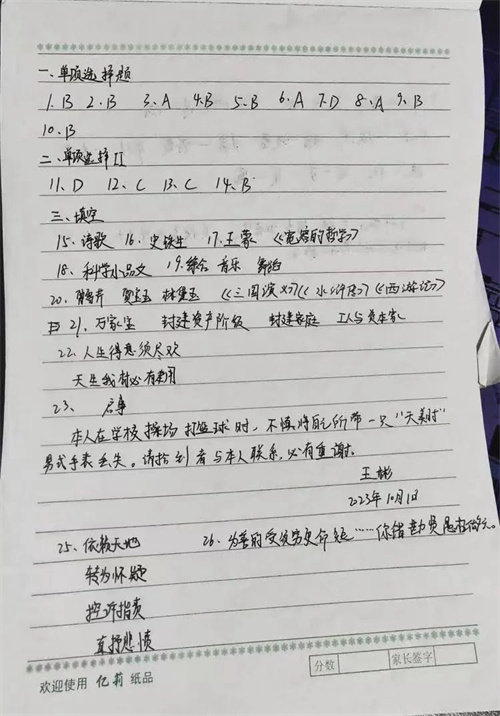 一、单项选择题
1.B 2.B 3.A 4.B 5.B 6.A 7.D 8.A 9.B
10.B
二、单项选择II
11、D 12、C 13、C 14、B
三、填空
15、诗歌 16、史铁生 17、王蒙 《宽容的哲学》
18、科学小品文 19.综合 音乐 舞蹈
20、曹雪芹 贾宝玉 林黛玉 《三国演义》《水浒传》《西游记》
21、万家宝 封建资产阶级 封建家庭 工人与资本家
22.人生得意须尽欢
天生我材必有用
23、 启事
本人在学校操场打篮球时，不慎将自己所带一只"天美时"
男式手表丢失。请拾到者与本人联系，必有重谢。
王彬
2023年10月1日
25、依赖天地 26、为善的受贫穷更命短……你错勘贤愚枉做天。
转为怀疑
控诉指责
直抒悲愤
分数 家长签字
欢迎使用 亿莉 纸品